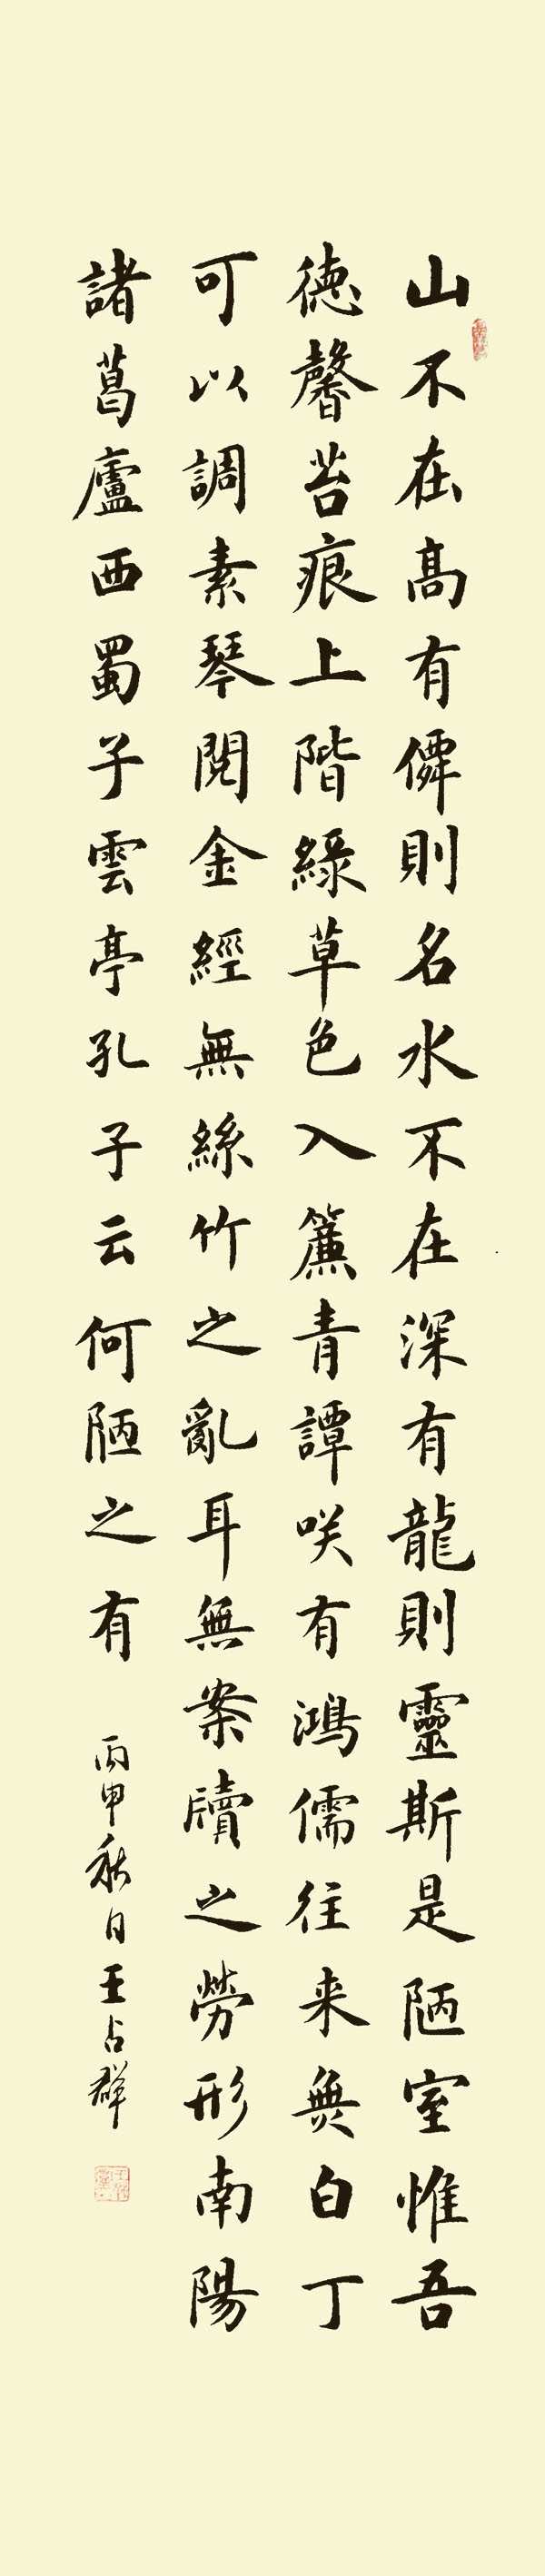 山不在高有僊則名水不在深有龍則靈斯是陋室惟吾
德馨苔痕上階綠草色入簾青譚咲有鴻儒往来無白丁
可以調素琴閱金經無絲竹之亂耳無案牘之勞形南陽
諸葛廬西蜀子雲亭孔子云何陋之有
丙申秋日王占群